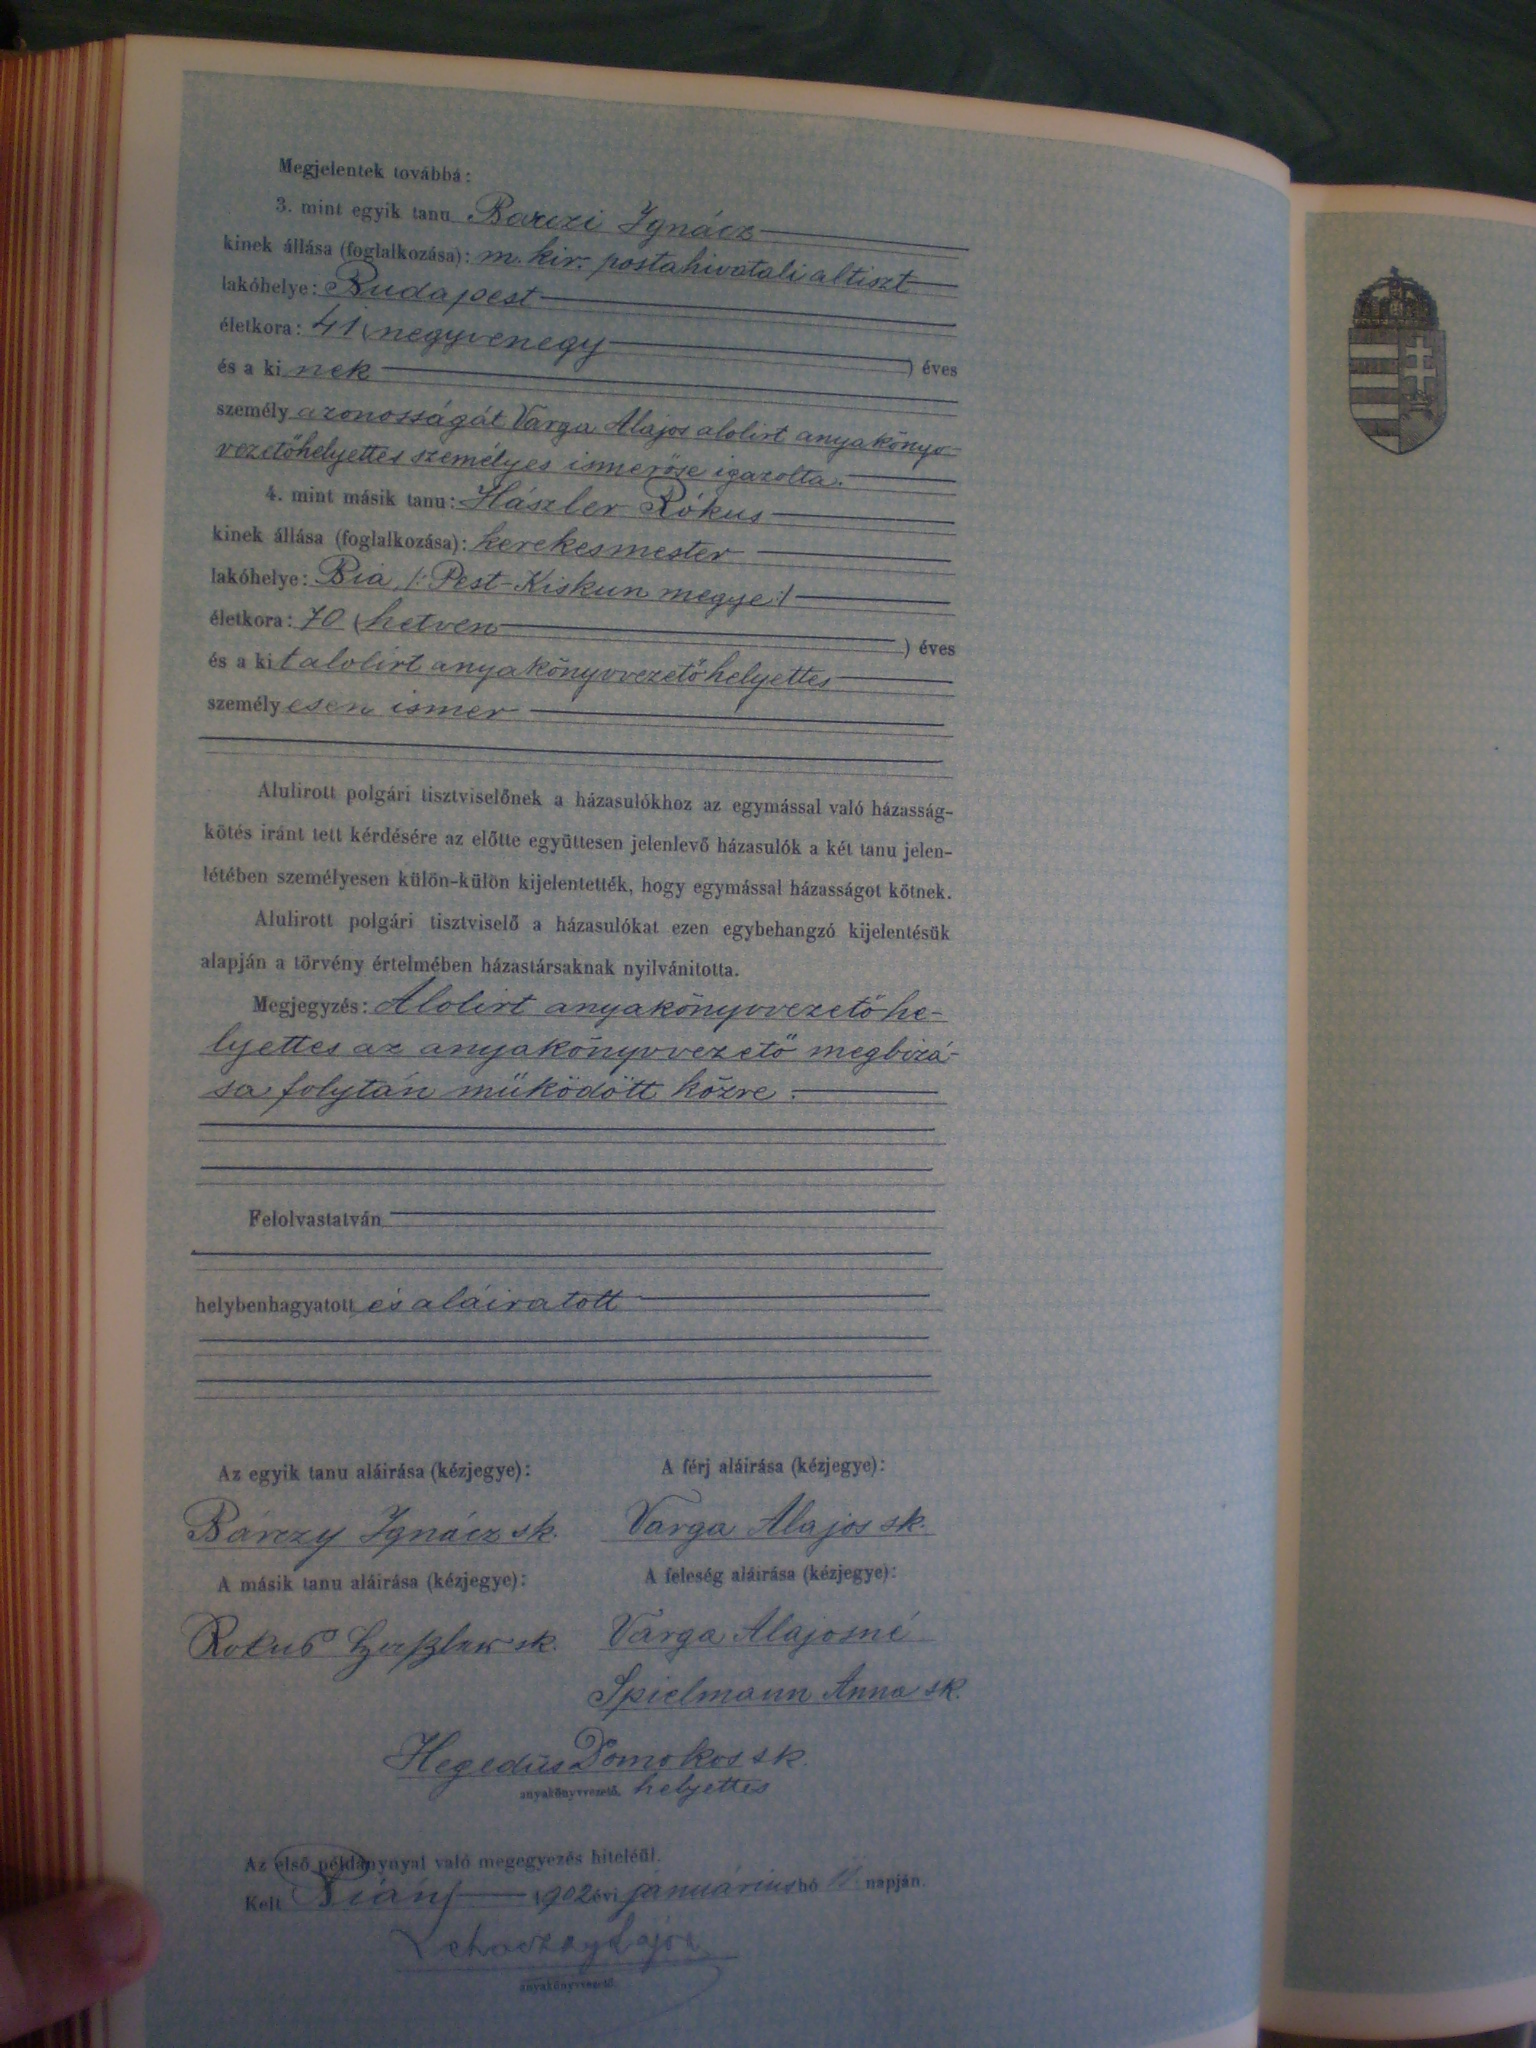 Megjelentek továbbá:
3. mint egyik tanu Barczi Ignácz
kinek állása (foglalkozása): m. kir. postahivatali altiszt
lakóhelye: Budapest
életkora: 41 (negyvenegy ) éves
és a ki nek
személy azonosságát Varga Alajos alolirt anyakönyv-
vezetőhelyettes személyes ismerőse igazolta.
4. mint másik tanu: Hászler Rókus
kinek állása (foglalkozása): kerekesmester
lakóhelye: Bia /: Pest-Kiskun megye :/
életkora: 70 (hetven ) éves
és a kit alolirt anyakönyvvezetőhelyettes
személyesen ismer
Alulirott polgári tisztviselőnek a házasulókhoz az egymással való házasság-
kötés iránt tett kérdésére az előtte együttesen jelenlevő házasulók a két tanu jelen-
létében személyesen külön-külön kijelentették, hogy egymással házasságot kötnek.
Alulirott polgári tisztviselő a házasulókat ezen egybehangzó kijelentésük
alapján a törvény értelmében házastársaknak nyilvánitotta.
Megjegyzés: Alolirt anyakönyvvezetőhe-
lyettes az anyakönyvvezető megbizá-
sa folytán müködött közre.
Felolvastatván
helybenhagyatott és aláiratott
Az egyik tanu aláirása (kézjegye): A férj aláirása (kézjegye):
Bárczy Ignácz sk. Varga Alajos sk.
A másik tanu aláirása (kézjegye): A feleség aláirása (kézjegye):
Rokus Haßler sk. Varga Alajosné
Spielmann Anna sk.
Hegedüs Domokos sk.
anyakönyvvezető. helyettes
Az első példánynyal való megegyezés hiteléül.
Kelt Bián 1902 évi januárius hó napján.
anyakönyvvezető